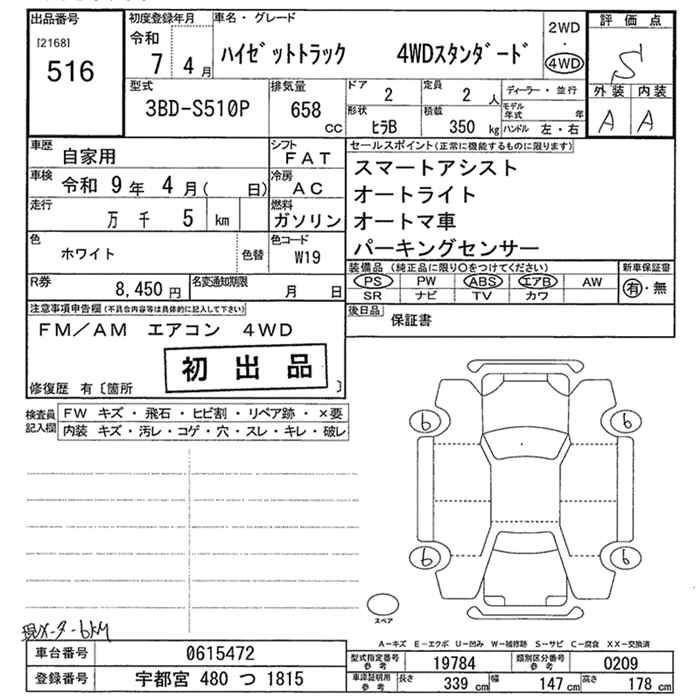 出品番号
[2168]
516
初度登録年月
令和
7 4 月
車名・グレード
ハイゼットトラック 4WDスタンダード
2WD
・
4WD
評価点
S
外装 内装
A A
型式
3BD-S510P
排気量
658 cc
ドア
2
定員
2 人
形状
ヒラB
積載
350 kg
ディーラー・並行
モデル年式 年
ハンドル 左・右
車歴
自家用
シフト
FAT
車検
令和 9 年 4 月( 日)
冷房
AC
走行
万 千 5 km
燃料
ガソリン
色
ホワイト
色替
色コード
W19
R券
8,450 円
名変通知期限
月 日
セールスポイント(正常に機能するものに限ります)
スマートアシスト
オートライト
オートマ車
パーキングセンサー
装備品(純正品に限り○をつけてください)
新車保証書
PS PW ABS エアB AW
有・無
SR ナビ TV カワ
後日品
保証書
注意事項申告欄(不具合内容等は具体的に記入して下さい)
FM/AM エアコン 4WD
初出品
修復歴 有〔箇所 〕
検査員記入欄
FW キズ・飛石・ヒビ割・リペア跡・×要
内装 キズ・汚レ・コゲ・穴・スレ・キレ・破レ
6 6
6 6
スペア
現メーター6KM
A-キズ E-エクボ U-凹み W-補修跡 S-サビ C-腐食 XX-交換済
車台番号 0615472
型式指定番号参考 19784
類別区分番号参考 0209
登録番号 宇都宮 480 つ 1815
車庫証明用参考
長さ 339 cm 幅 147 cm 高さ 178 cm